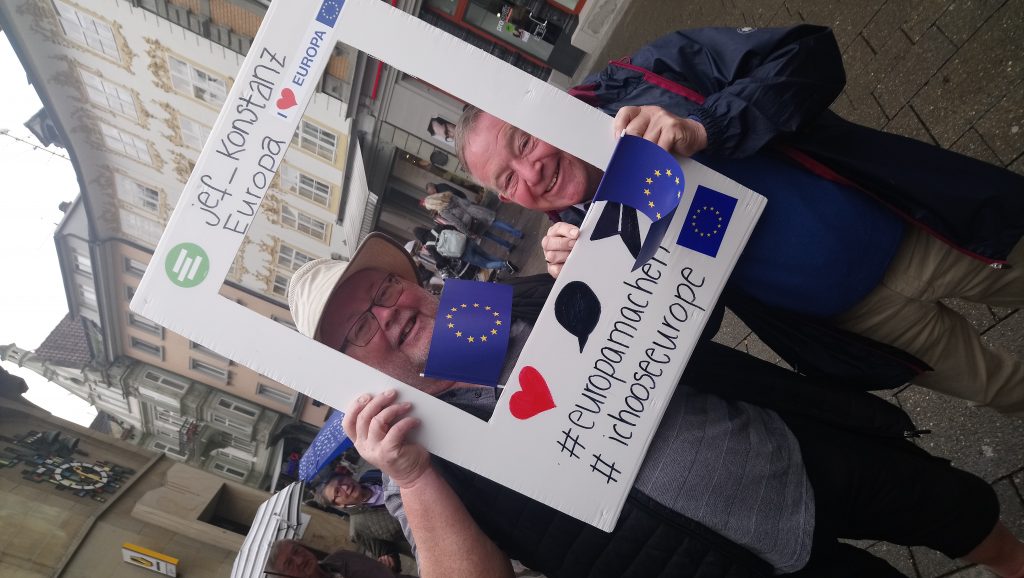 jef-Konstanz
Europa
I ❤ EUROPA
#europamachen
#ichooseeurope